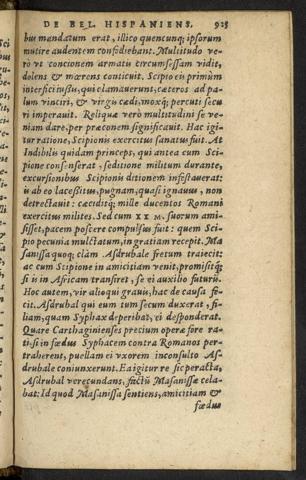 DE BEL. HISPANIENS. 925
bus mandatum erat, illico quencunq; ipsorum
mutire audentem confodiebant. Multitudo ve-
rò vt concionem armatis circumsessam vidit,
dolens & mœrens conticuit. Scipio eis primùm
interfici iussis, qui clamauerunt, cæteros ad pa-
lum vinciri, & virgis cædi, moxq; percuti secu
ri imperauit. Reliquæ verò multitudini se ve-
niam dare, per præconem significauit. Hac igi-
tur ratione, Scipionis exercitus sanatus fuit. At
Indibilis quidam princeps, qui antea cum Sci-
pione consenserat, seditione militum durante,
excursionibus Scipionis ditionem infestauerat:
is ab eo lacessitus, pugnam, quasi ignauus, non
detrectauit: cæciditq; mille ducentos Romani
exercitus milites. Sed cum XX M. suorum ami-
sisset, pacem poscere compulsus fuit: quem Sci-
pio pecunia mulctatum, in gratiam recepit. Ma
sanissa quoq; clàm Asdrubale fretum traiecit:
ac cum Scipione in amicitiam venit, promisitq;
si is in Africam transfret, se ei auxilio futurū.
Hoc autem, vir alioqui gratus, hac de causa fe-
cit. Asdrubal qui eum tum secum duxerat, fi-
liam, quam Syphax deperibat, ei desponderat.
Quare Carthaginienses precium operæ fore ra-
ti, si in fœdus Syphacem contra Romanos per-
traherent, puellam ei vxorem inconsulto As-
drubale coniunxerunt. Ea igitur re sic peracta,
Asdrubal verecundans, factū Masanissæ cela-
bat: Id quod Masanissa sentiens, amicitiam &
fœdus